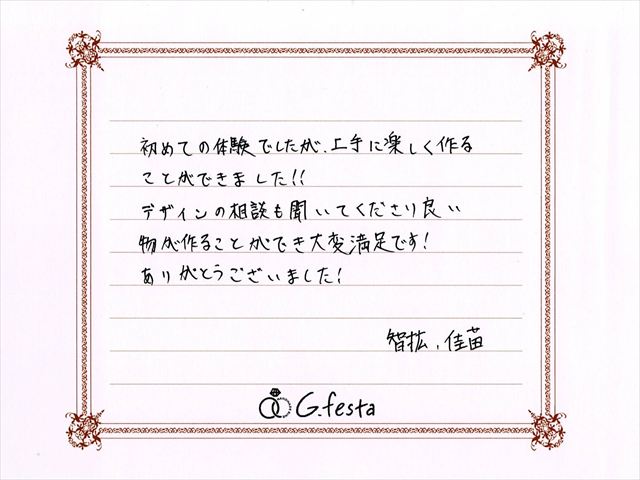 初めての体験でしたが、上手に楽しく作る
ことができました!!
デザインの相談も聞いてくださり良い
物が作ることができ大変満足です!
ありがとうございました!
智拡、佳苗
G.festa